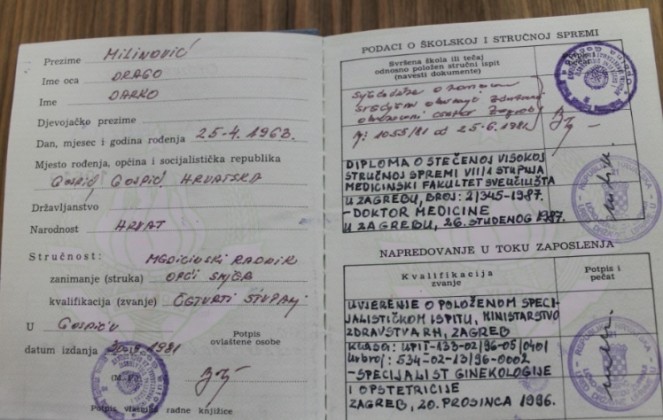 Prezime MILINOVIĆ
Ime oca DRAGO
Ime DARKO
Djevojačko prezime
Dan, mjesec i godina rođenja 25-4. 1963.
Mjesto rođenja, općina i socijalistička republika
GOSPIĆ GOSPIĆ HRVATSKA
Državljanstvo
Narodnost HRVAT
Stručnost: MEDICINSKI RADNIK
zanimanje (struka) OPĆI SMJER
kvalifikacija (zvanje) ČETVRTI STUPANJ
U GOSPIĆU
Potpis
ovlaštene osobe
datum izdanja 1981
(M. P.)
Potpis radne knjižice
PODACI O ŠKOLSKOJ I STRUČNOJ SPREMI
Svršena škola ili tečaj
odnosno položen stručni ispit
(navesti dokumente)
Svjedodžba o završnom
obrazovni centar Zagreb
1055/81 od 25-6.1981
DIPLOMA O STEČENOJ VISOKOJ
STRUČNOJ SPREMI VII/1 STUPNJA
MEDICINSKI FAKULTET SVEUČILIŠTA
U ZAGREBU, BROJ: 2/345-1987.
-DOKTOR MEDICINE
U ZAGREBU, 26. STUDENOG 1987.
NAPREDOVANJE U TOKU ZAPOSLENJA
Kvalifikacija
zvanje
Potpis i
pečat
UVJERENJE O POLOŽENOM SPECI-
JALISTIČKOM ISPITU, MINISTARSTVO
ZDRAVSTVA RH, ZAGREB
KLASA: UPIT-133-02/96-05/0401
URBROJ: 534-02-13/96-0002
-SPECIJALIST GINEKOLOGIJE
I OPSTETRICIJE
ZAGREB, 20. PROSINCA 1996.